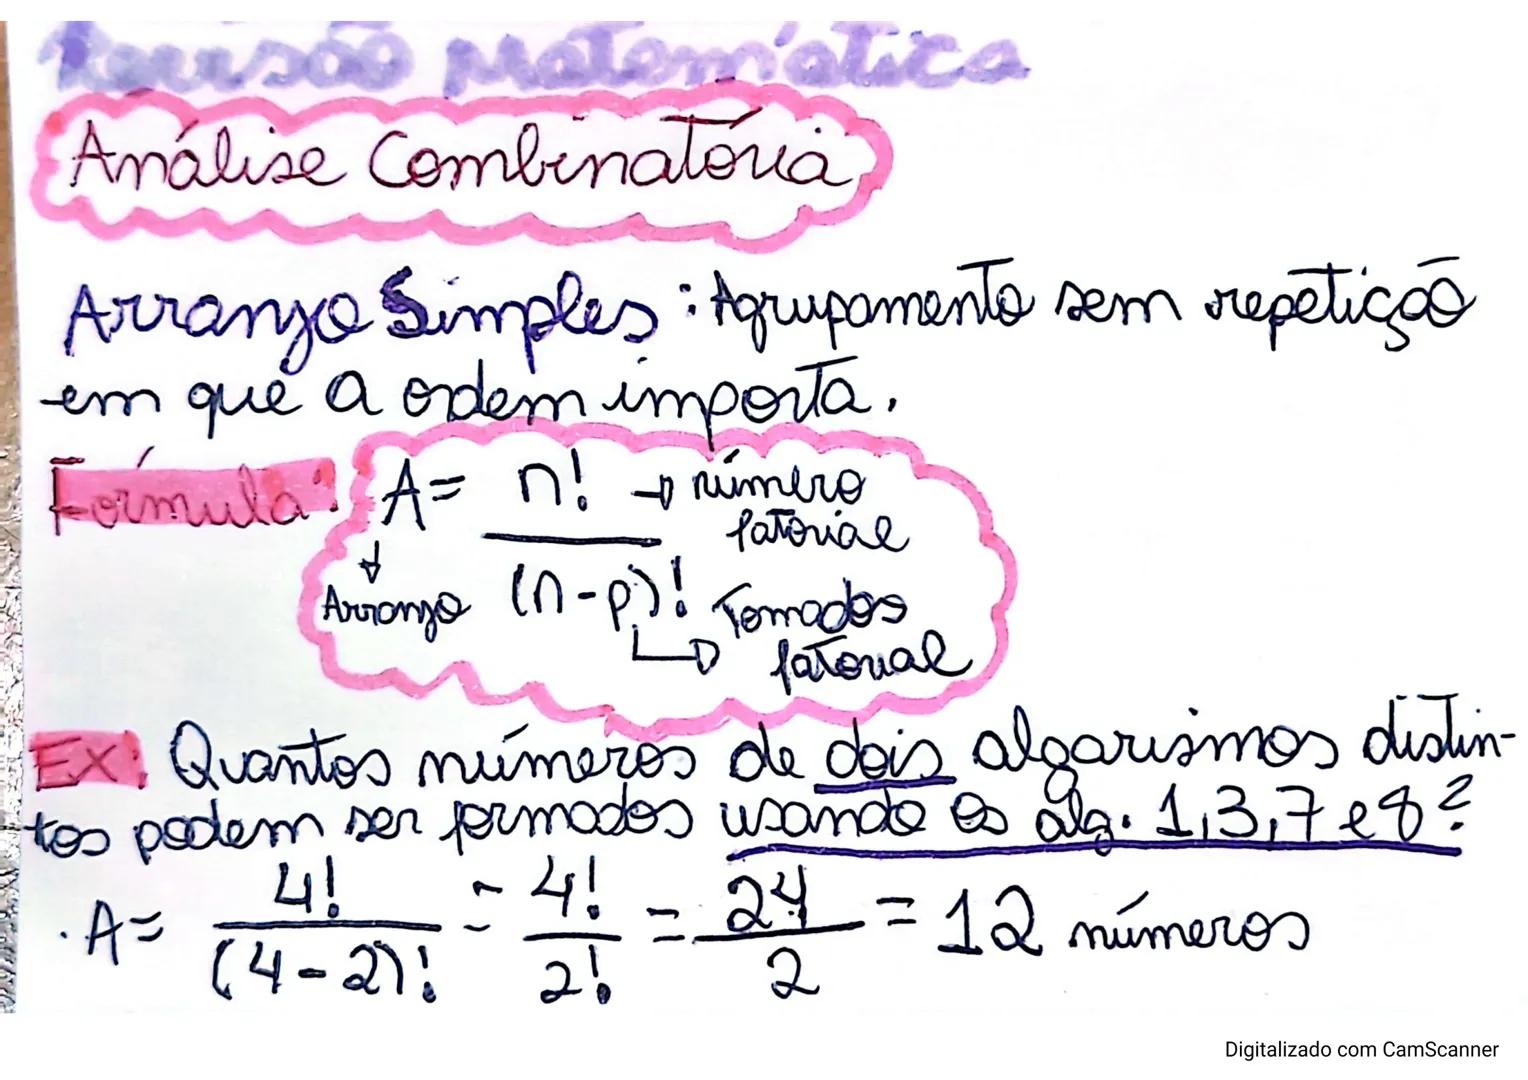 Revisão Matemática
Análise Combinatória
Arranjo Simples: Agrupamento sem repetição
em que a ordem importa.
Fórmula: A= n! → número
fatorial
(n-p)! Tomados
fatorial
Arranjo
Ex: Quantos números de dois algarismos distin-
tos podem ser formados usando os alg. 1,3,7 e 8?
. A= 4!/(4-2)! = 4!/2! = 24/2 = 12 números
Digitalizado com CamScanner